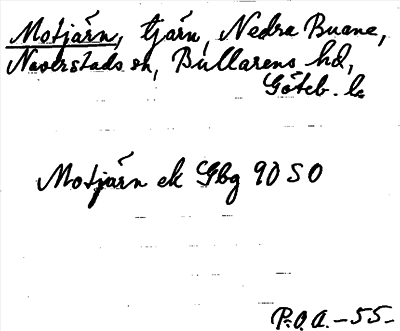 Motjärn, tjärn, Nedra Buane,
Naverstads sn, Bullarens hd,
Göteb. l.
Motjärn ek Gbg 90 SO
P.O.A. -55-